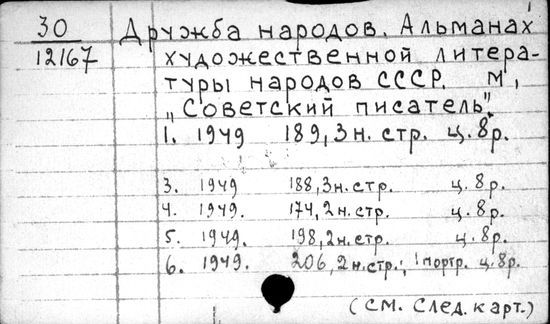 30 Дружба народов. Альманах
12167 художественной литера-
туры народов СССР. М,
„Советский писатель".
1. 1949 189, 3 н. стр. ц. 8 р.
3. 1949 188, 3 н. стр. ц. 8 р.
4. 1949. 174, 2 н. стр. ц. 8 р.
5. 1949. 198, 2 н. стр. ц. 8 р.
6. 1949. 206, 2 н. стр.; 1 портр. ц. 8 р.
(см. след. карт.)